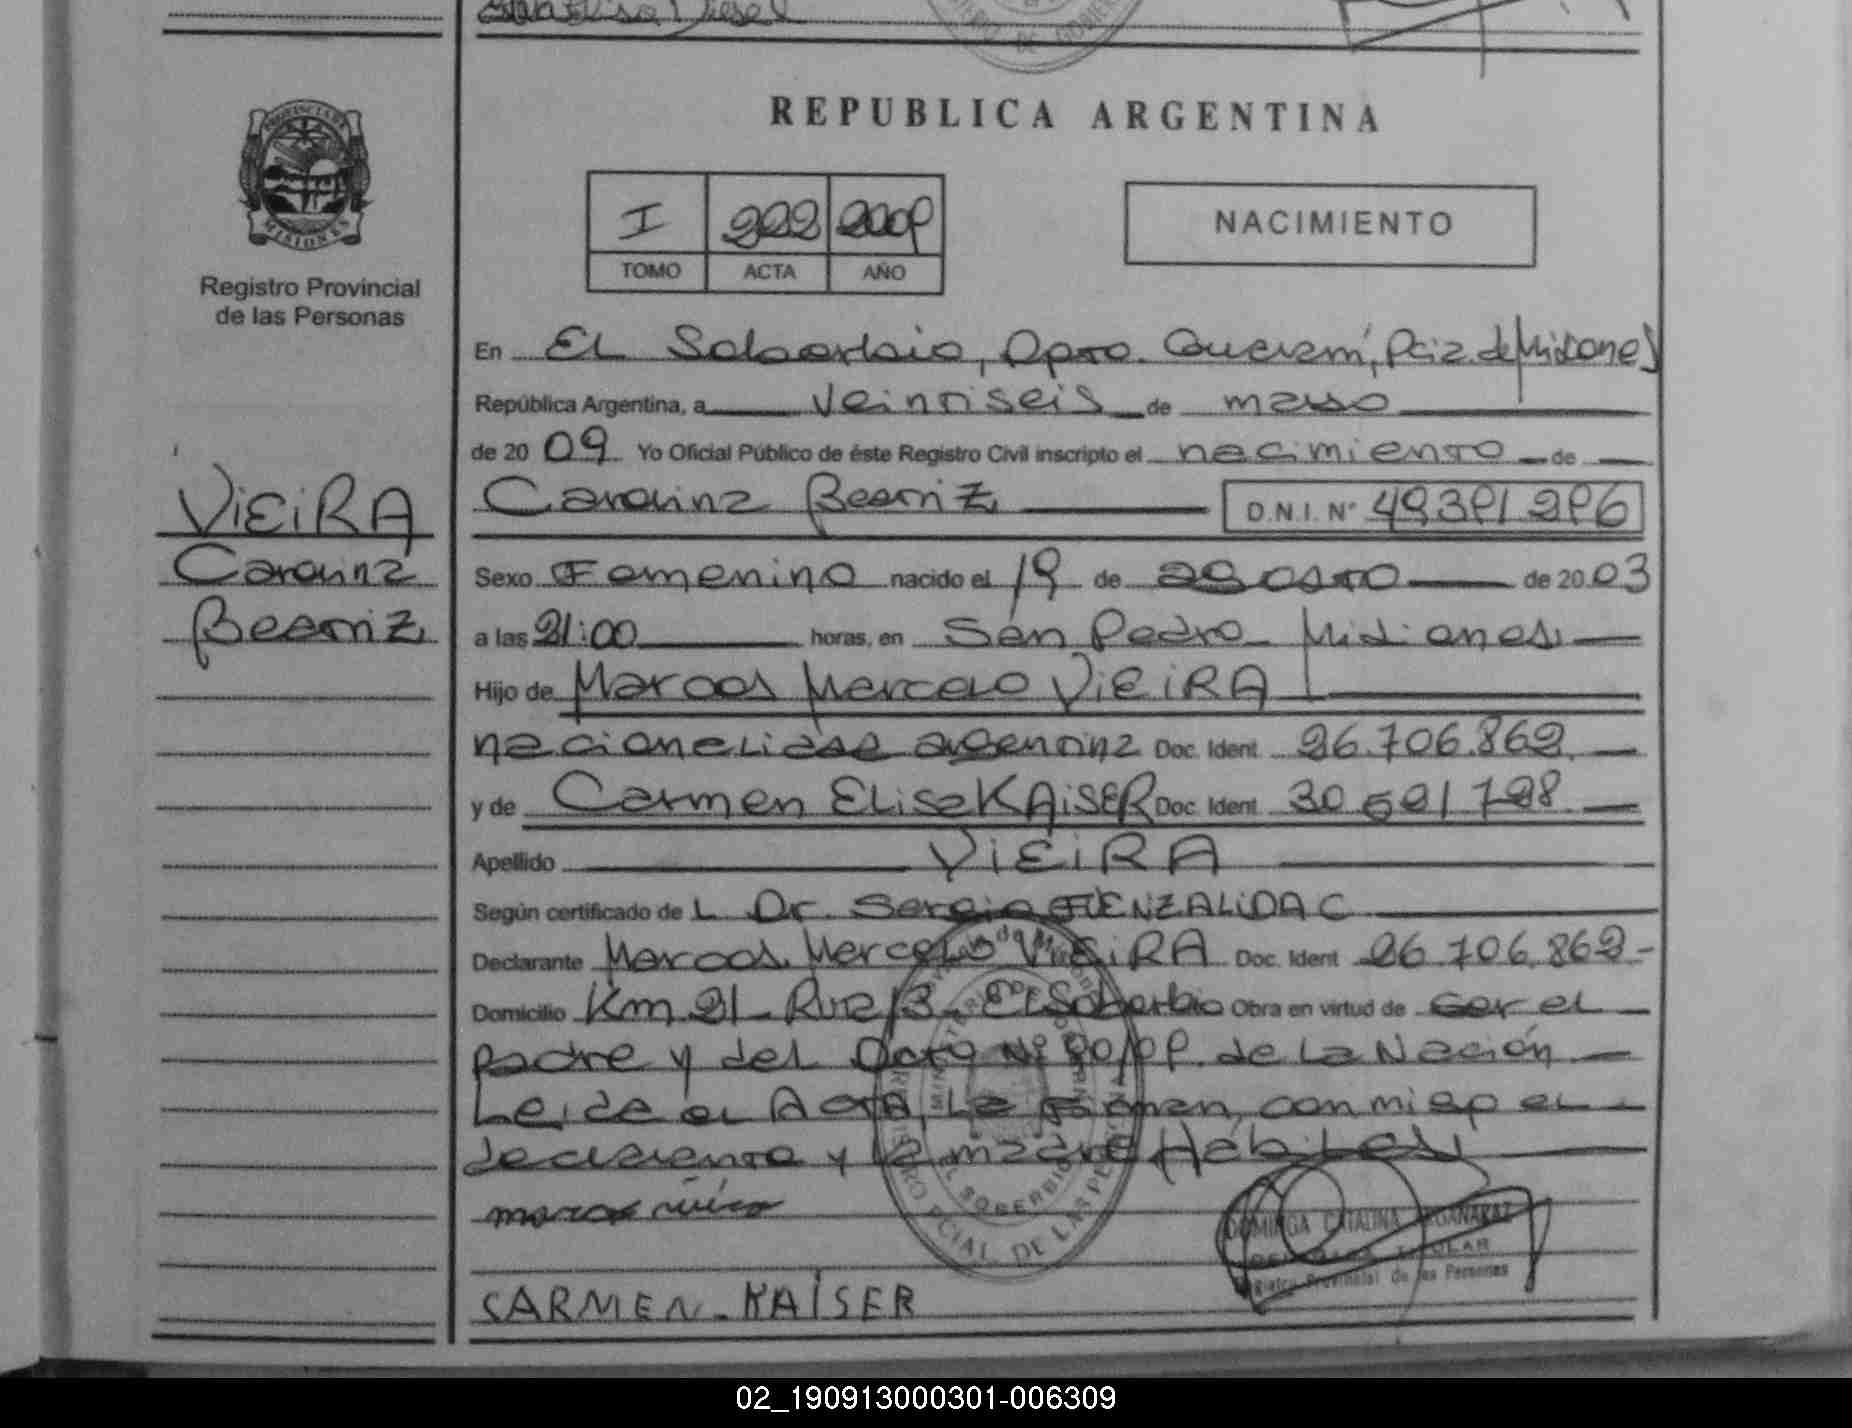 REPUBLICA ARGENTINA
PROVINCIA DE
MISIONES
Registro Provincial
de las Personas
I 222 2009
TOMO ACTA AÑO
NACIMIENTO
En El Soberbio, Dpto. Guaraní, Pcia. de Misiones
República Argentina, a veintiseis de marzo
de 2009 Yo Oficial Público de éste Registro Civil inscripto el nacimiento de
VIEIRA
Carolina
Beatriz
Carolina Beatriz D.N.I. Nº
Sexo Femenino nacido el 19 de agosto de 2003
a las 21:00 horas, en San Pedro Misiones
Hijo de Marcos Marcelo VIEIRA
nacionalidad argentina Doc. Ident. 26.706.862
y de Carmen Elisa KAISER Doc. Ident.
Apellido VIEIRA
Según certificado de L Dr. Sergio FUENZALIDA C
Declarante Marcos Marcelo VIEIRA Doc. Ident 26.706.862-
Domicilio Km 21- Ruta 13- El Soberbio Obra en virtud de ser el
padre y del Dcto Nº 90/09 de la Nación
Leida el Acta, la firman conmigo el
declarante y la madre Hábiles
EL SOBERBIO
DOMINGA CATALINA
TITULAR
Registro Provincial de las Personas
CARMEN-KAISER
02_190913000301-006309